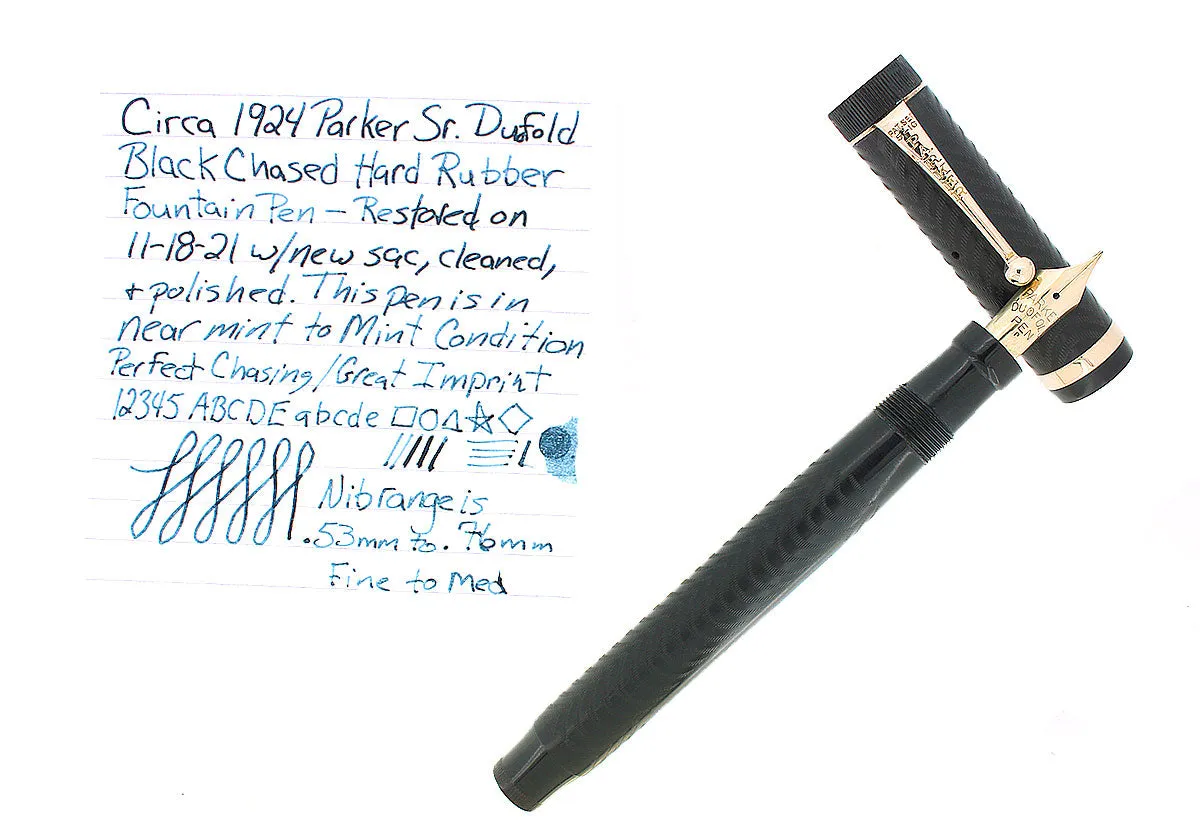 Circa 1924 Parker Sr. Dufold
Black Chased Hard Rubber
Fountain Pen – Restored on
11-18-21 w/new sac, cleaned,
+ polished. This pen is in
near mint to Mint Condition
Perfect Chasing/Great Imprint
12345 ABCDE abcde
Nib range is
.53mm to .76mm
Fine to Med
PARKE
DUOFOL
PEN